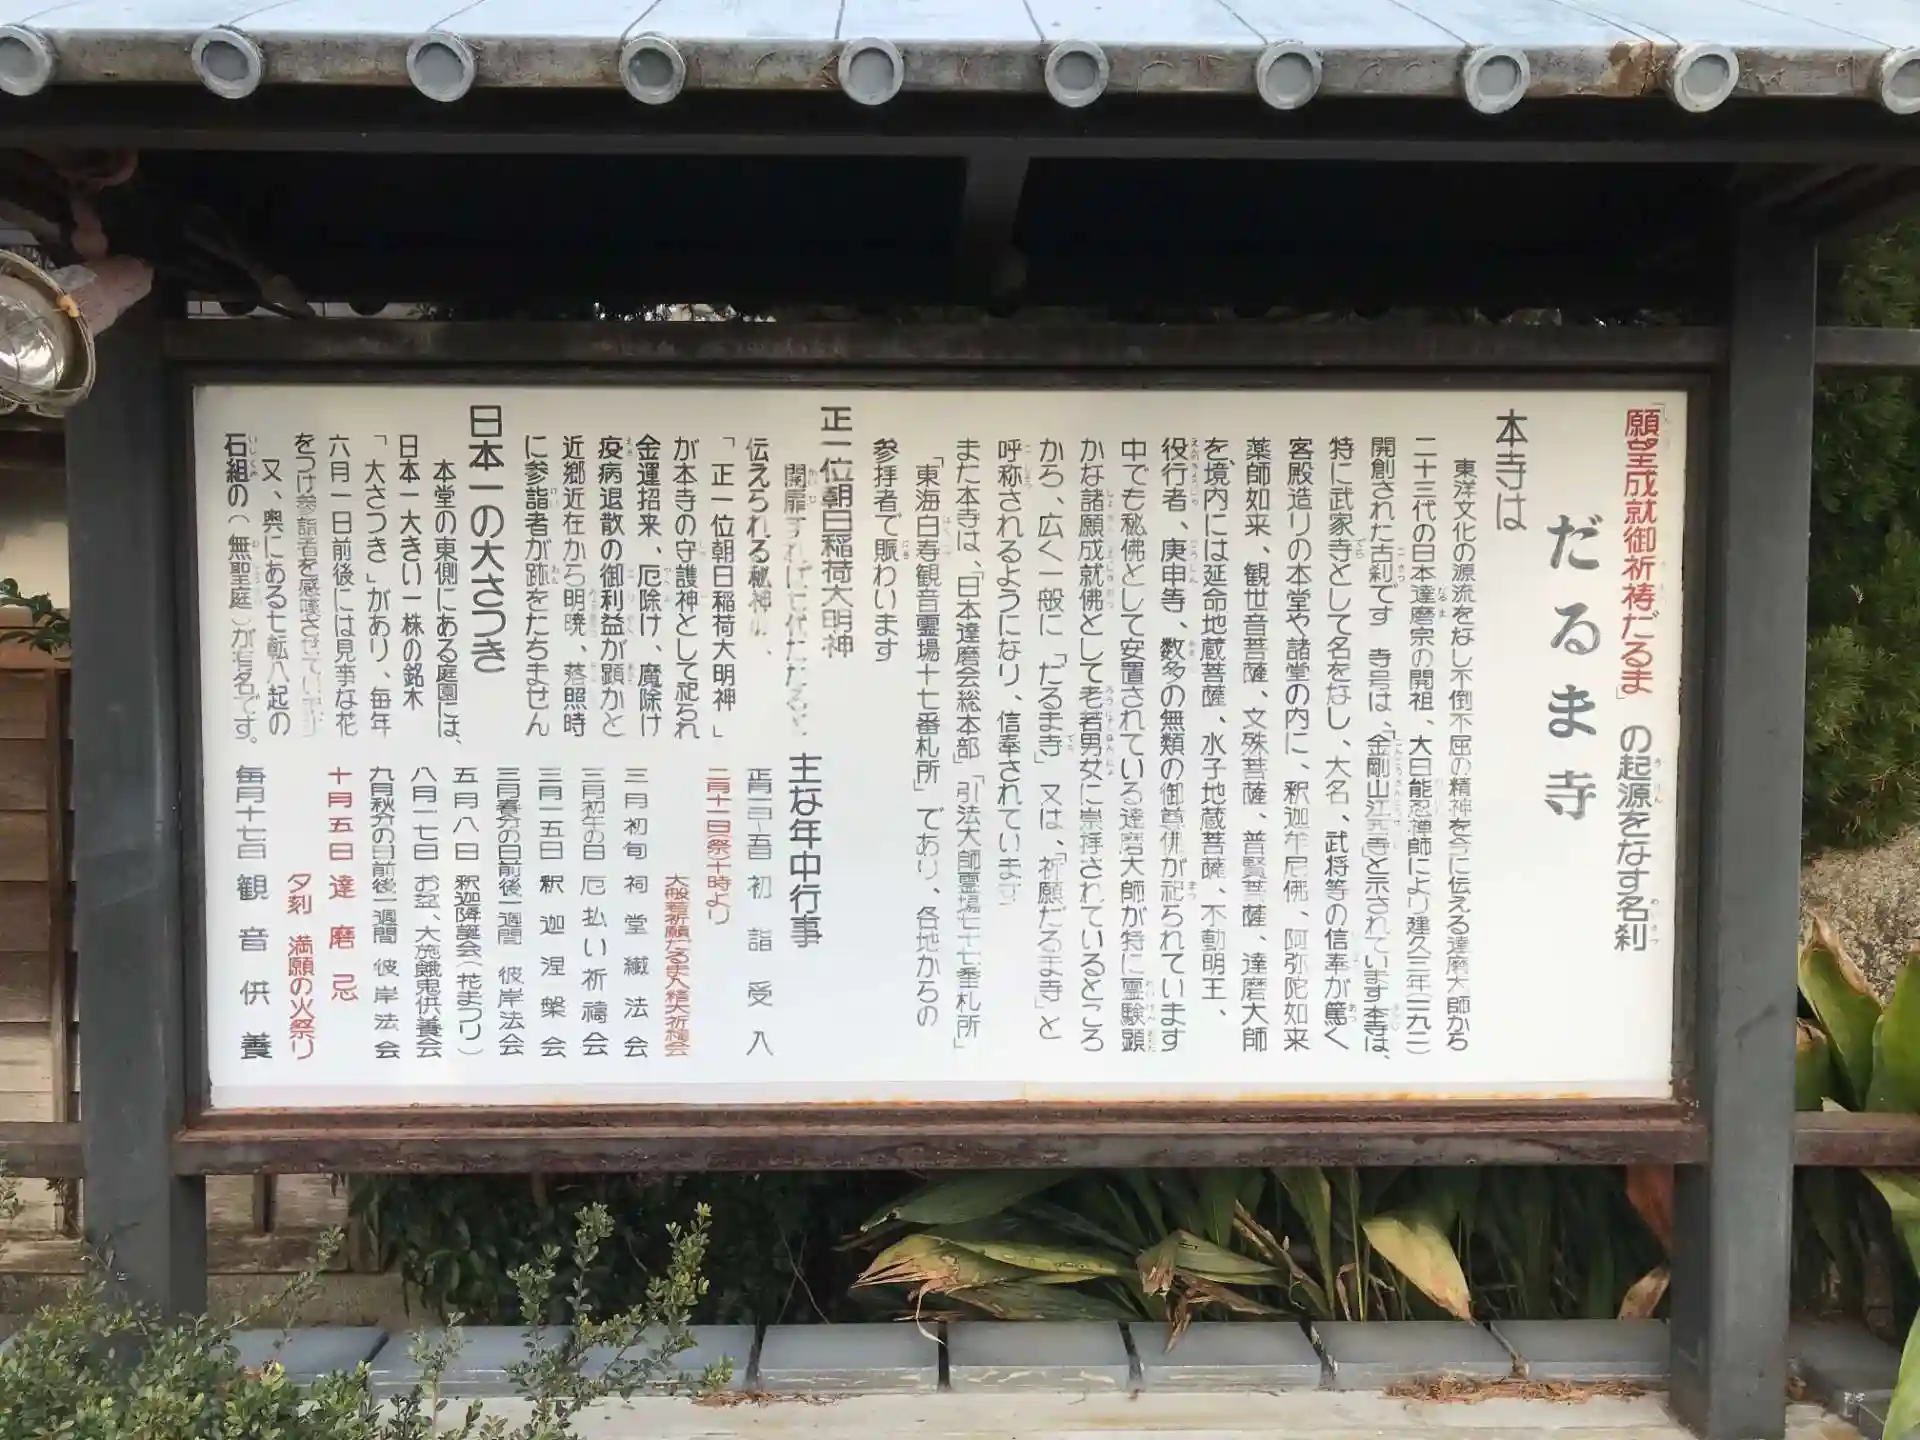 「願望成就御祈祷だるま」の起源をなす名刹
だるま寺
本寺は
東洋文化の源流をなし不倒不屈の精神を今に伝える達磨大師から
二十三代の日本達磨宗の開祖、大日能忍禅師により建久三年(一一九二)
開創された古刹です 寺号は、「金剛山江 寺」と示されています本寺は、
特に武家寺として名をなし、大名、武将等の信奉が篤く
客殿造りの本堂や諸堂の内に、釈迦牟尼佛、阿弥陀如来
薬師如来、観世音菩薩、文殊菩薩、普賢菩薩、達磨大師
を、境内には延命地蔵菩薩、水子地蔵菩薩、不動明王、
役行者、庚申等、数多の無類の御尊佛が祀られています
中でも秘佛として安置されている達磨大師が特に霊験顕
かな諸願成就佛として老若男女に崇拝されているところ
から、広く一般に「だるま寺」又は、「祈願だるま寺」と
呼称されるようになり、信奉されています
また本寺は、「日本達磨会総本部」「引法大師霊場七十七番札所」
「東海白寿観音霊場十七番札所」であり、各地からの
参拝者で賑わいます
正一位朝日稲荷大明神
開扉すれば七代たたると
伝えられる秘神の、
「正一位朝日稲荷大明神」
が本寺の守護神として祀られ
金運招来、厄除け、魔除け
疫病退散の御利益が顕かと
近郷近在から明暁、落照時
に参詣者が跡をたちません
日本一の大さつき
本堂の東側にある庭園には、
日本一大きい一株の銘木
「大さつき」があり、毎年
六月一日前後には見事な花
をつけ参詣者を感嘆させてい
又、奥にある七転八起の
石組の(無聖庭)が有名です。
主な年中行事
正月一日〜五日 初詣受入
二月十一日(祭)十時より
大般若祈願だるま大精大祈祷会
三月初旬 祠堂繊法会
三月初午の日 厄払い祈祷会
三月一五日 釈迦涅槃会
三月春分の日前後一週間 彼岸法会
五月八日 釈迦降誕会(花まつり)
八月一七日 お盆、大施餓鬼供養会
九月秋分の日前後一週間 彼岸法会
十月五日 達磨忌
夕刻 満願の火祭り
毎月十七日 観音供養